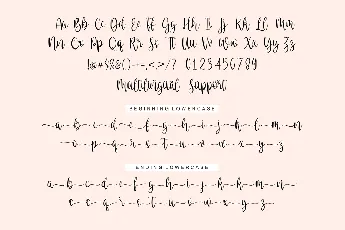 Aa Bb Cc Dd Ee Ff Gg Hh Ii Jj Kk Ll Mm
Nn Oo Pp Qq Rr Ss Tt Uu Vv Ww Xx Yy Zz
0123456789
multilingual support
BEGINNING LOWERCASE
a b c d e f g h i j k l m n
o p q r s t u v w x y z
ENDING LOWERCASE
a b c d e f g h i j k l m n
o p q r s t u v w x y z